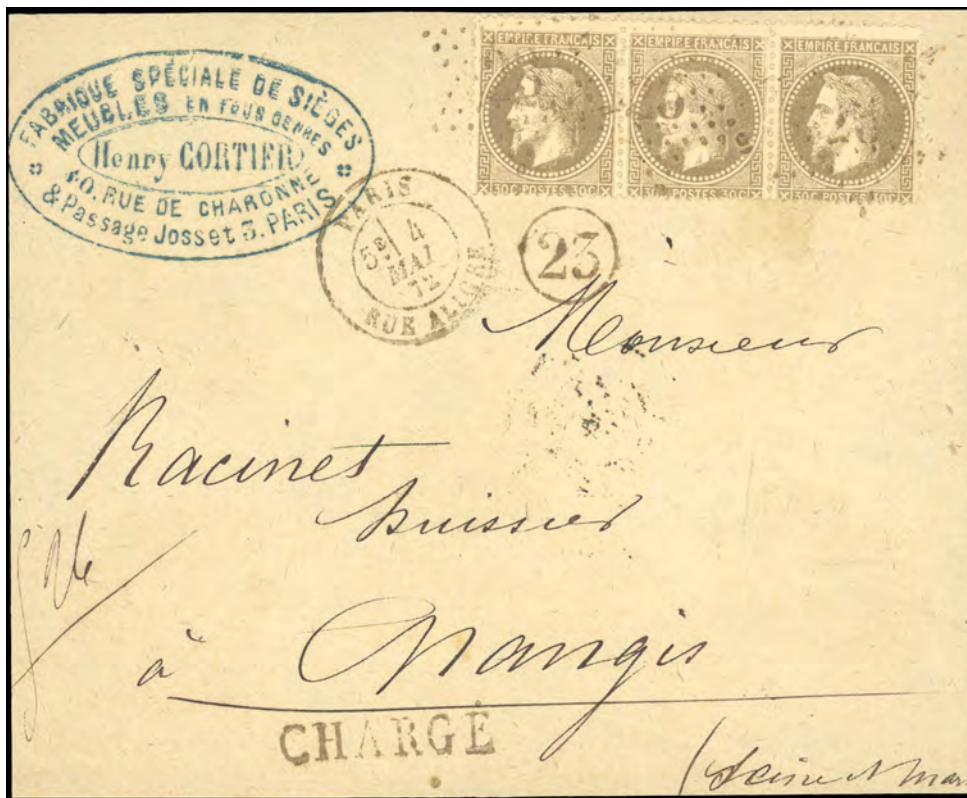 FABRIQUE SPÉCIALE DE SIÈGES
MEUBLES EN TOUS GENRES
Henry CORTIER
40. RUE DE CHARONNE
& Passage Josset 3. PARIS
EMPIRE FRANCAIS EMPIRE FRANCAIS EMPIRE FRANCAIS
30C POSTES 30C 30C POSTES 30C 30C POSTES 30C
PARIS
5E 4
MAI
72
RUE ALIGRE
23
Monsieur
Racinet
huissier
à Nangis
CHARGÉ
(Seine & Mar